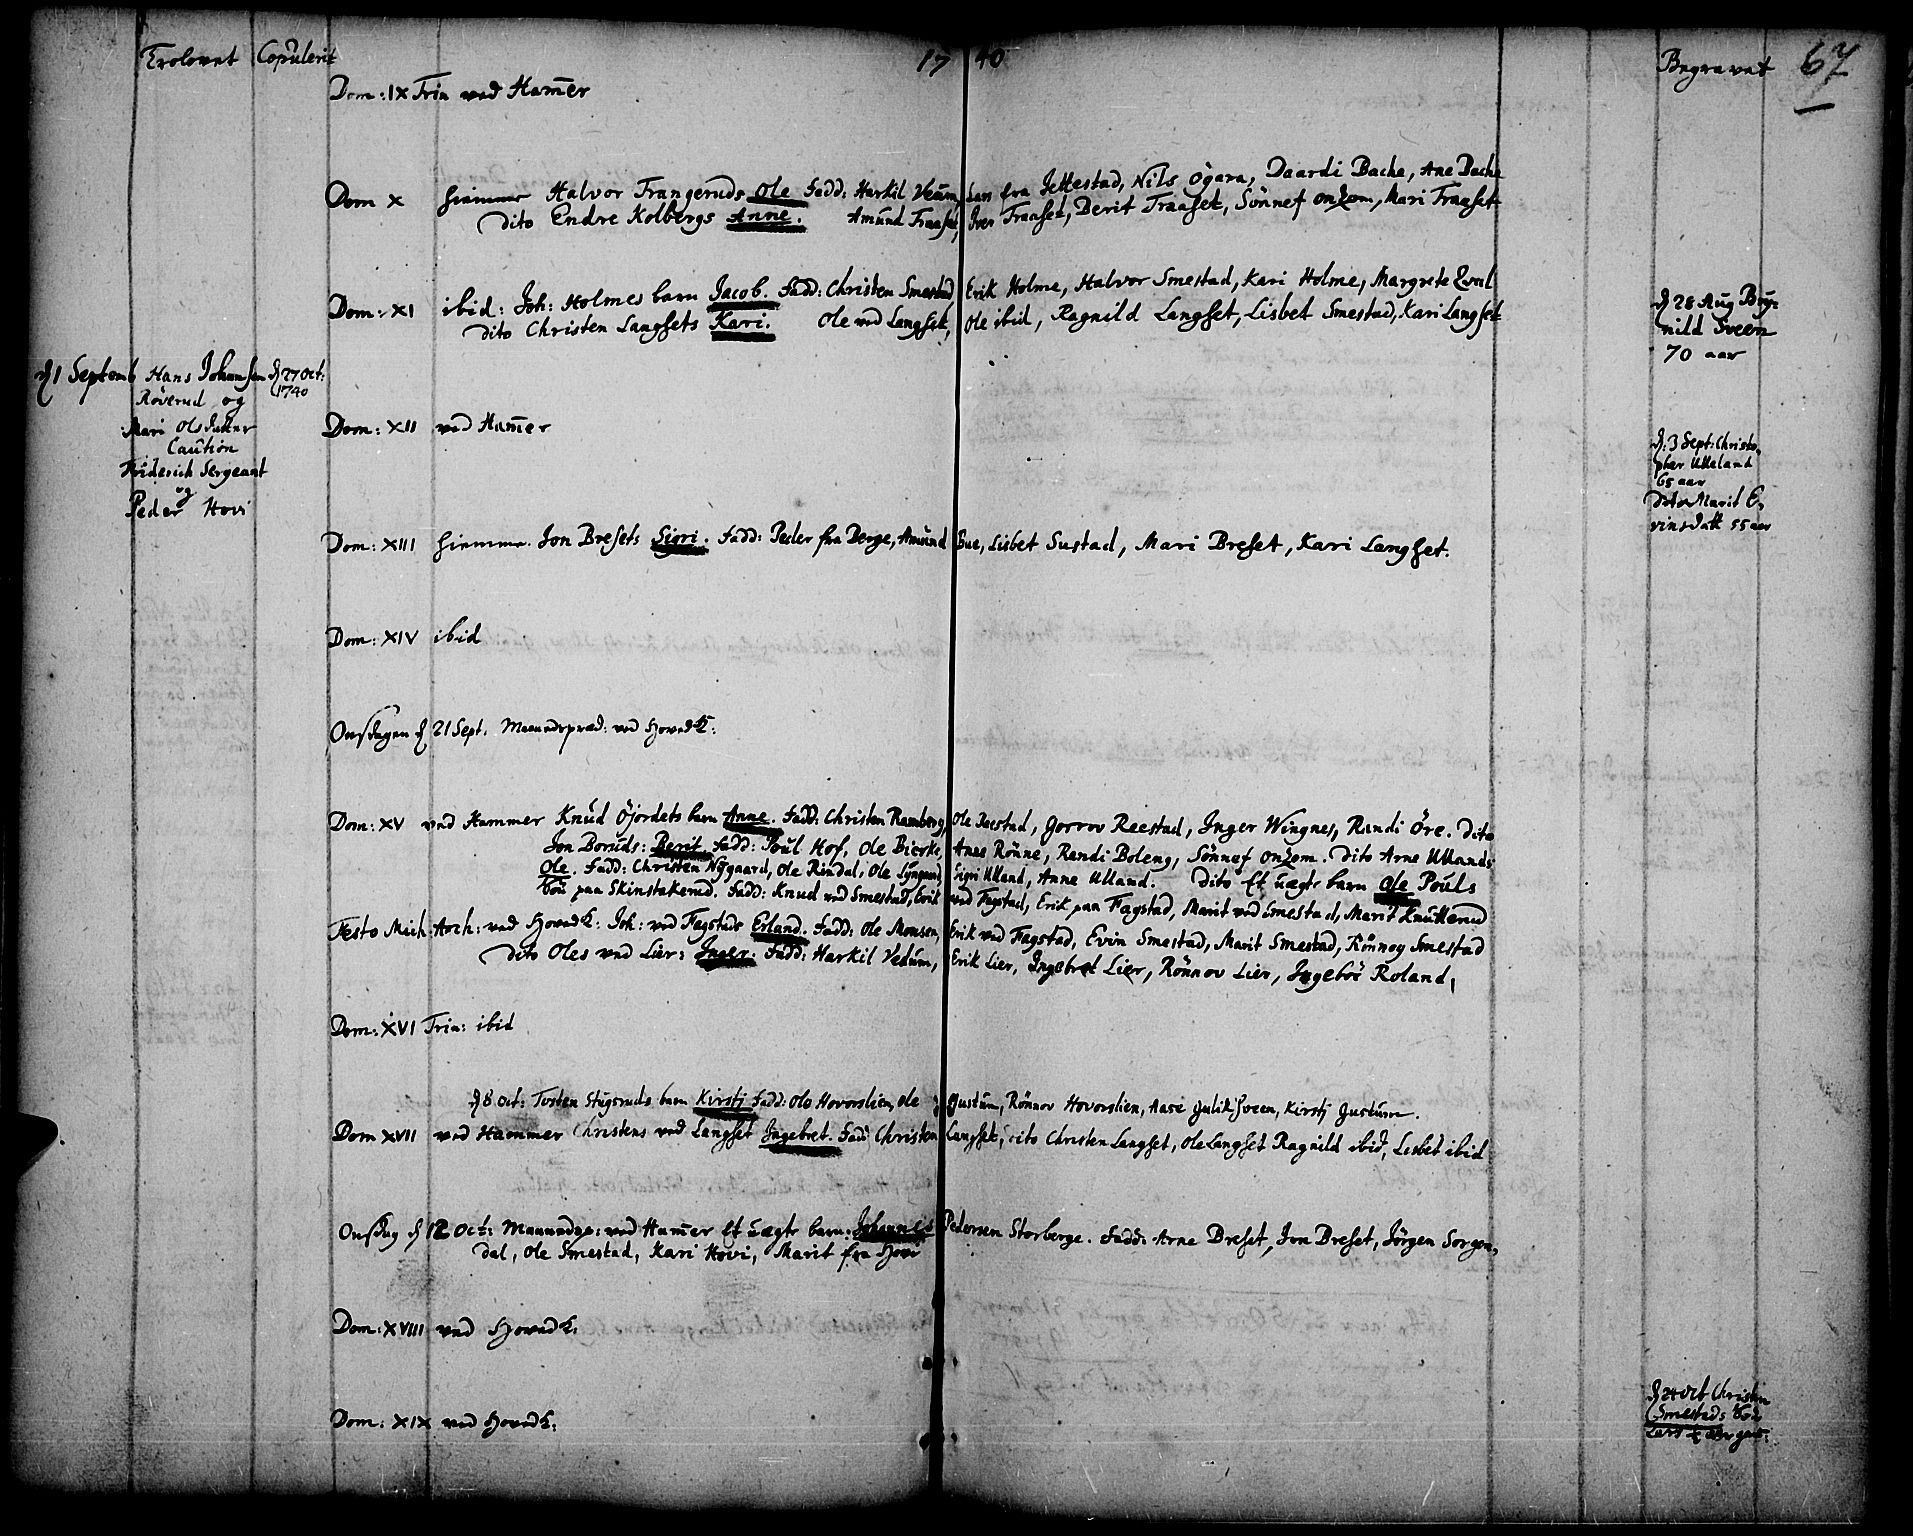 Trolovet Copulerit 17 40 Begravet 67
Dom: IX Trin ved Hamer
Dom X hiemme Halvor Trangeruds Ole Fadd: Harkil Veum, Lars fra Jettestad, Nils Øgara, Daardi Bache, Ane Bache
Dito Endre Kolbergs Anne. Amund Fraaset, Iver Fraaset, Berit Fraaset, Sönnef Mari Fraaset
Dom: XI ibid: Joh: Holmes barn Jacob. Fadd: Christen Smestad Erik Holme, Halvor Smestad, Kari Holme, Margrete
dito Christen Langsets Kari. Ole ved Langset, Ole ibid, Ragnild Langset, Lisbet Smestad, Kari Langset
d 28 Aug Bryn-
nild Sveen
70 aar
d 1 Septemb Hans Johansen d 27 Oct:
1740
Röverud og
Mari Olsdatter
Caution
Friderich Sergeant
og
Peder Hovi
Dom: XII ved Hamer
d: 3 Sept: Christo-
pher Ulleland
65 aar
Dito Marit E-
vinsdatt 55 aar
Dom: XIII hiemme. Jon Bresets Sigri. Fadd: Peder fra Berge, Amund Bue, Lisbet Sustad, Mari Breset, Kari Langset.
Dom: XIV ibid
Onsdagen d 21 Sept. Maanedspræd: ved Hovedk:
Dom: XV ved Hammer Knud Öjordets barn Anne. Fadd: Christen Ramberg, Ole Reestad, Gorrov Reestad, Inger Wingnes, Randi Öre. Dito
Jon Boruds: Berit. Fadd: Poul Hof, Ole Bierke, Anne Rönne, Randi Boleng, Sönnef Dito Arne Ullands
Ole. Fadd: Christen Nygaard, Ole Rindal, Ole Lyngaard, Sigri Ulland, Anne Ulland. Dito Et uægte barn Ole Pouls
paa Skinstakerud. Fadd: Knud ved Smestad, Erik ved Fagstad, Erik paa Fagstad, Marit ved Smestad, Marit Knutterud
Festo Mich: Arch: ved Hovedk: Joh: ved Fagstads Erland. Fadd: Ole Monsen, Erik ved Fagstad, Evin Smestad, Marit Smestad, Rönnoy Smestad
Dito Oles ved Lier: Inger. Fadd: Harkil Vedum, Erik Lier, Ingebret Lier, Rönnov Lier, Ingebor Roland,
Dom: XVI Trin: ibid
d 8 Oct: Tosten Stugsruds barn Kirsti Fadd: Ole Hovorslien, Ole Justum, Rönnov Hovorslien, Aase Gulikssveen, Kirsti Justum.
Dom XVII ved Hammer Christens ved Langset Ingebret. Fadd Christen Langset, dito Christen Langset, Ole Langset Ragnild ibid, Lisbet ibid
Onsdag d 12 Oct: Maanedsp: ved Hamer Et uægte barn: Johannes Pedersen Storberge. Fadd: Arne Breset, Jon Breset, Jörgen Sorgen-
dal, Ole Smestad, Kari Hovi, Marit fra Hovi
Dom: XVIII ved Hovedk:
Dom: XIX ved Hovedk:
d 21 Oct Christen
Smestads
Lars